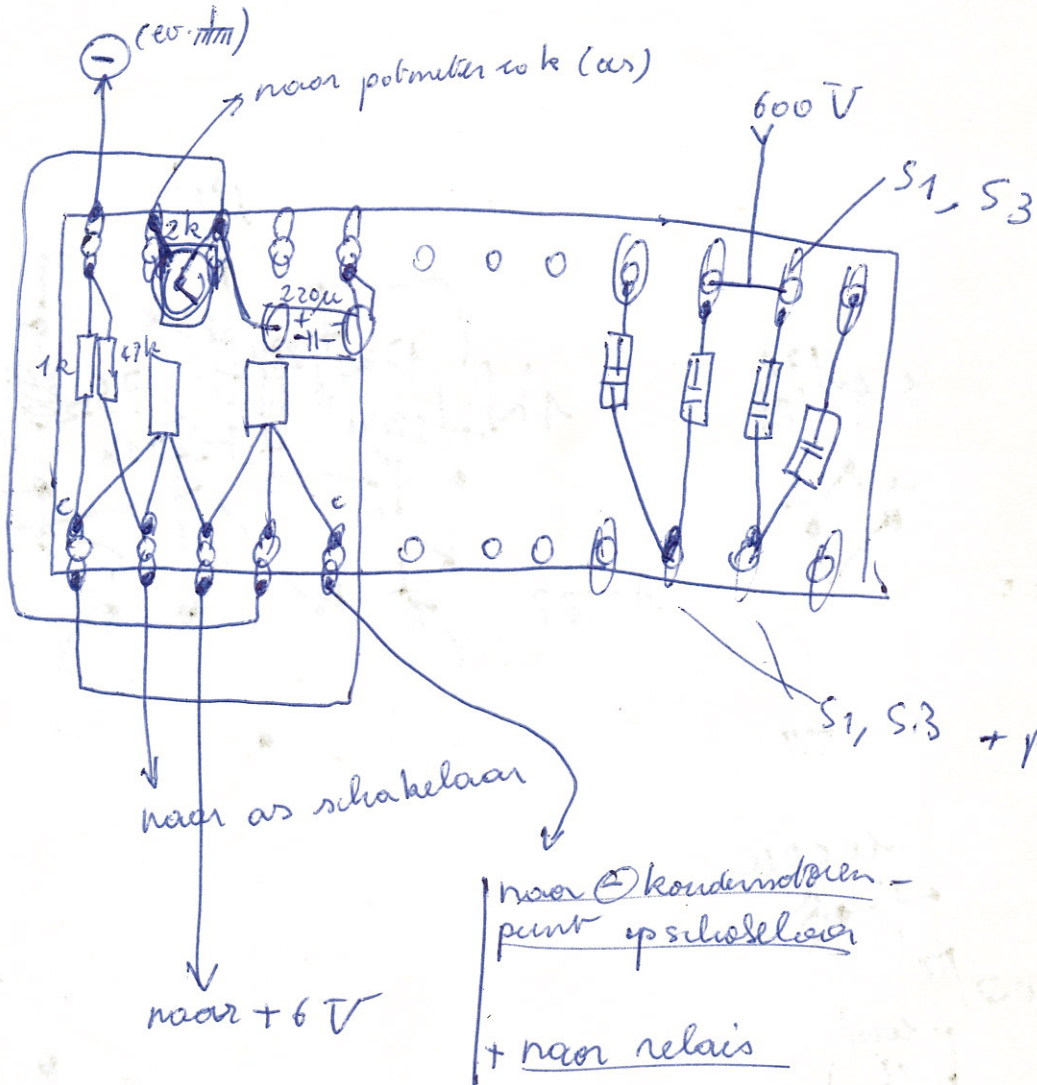 (ev.
naar potmeter 10 k (as)
600 V
S1, S3
2k
220µ
+
-
1k
47k
c
c
S1, S3 +
naar as schakelaar
naar ⊖ kondensatoren -
punt op schakelaar
naar + 6 V
+ naar relais